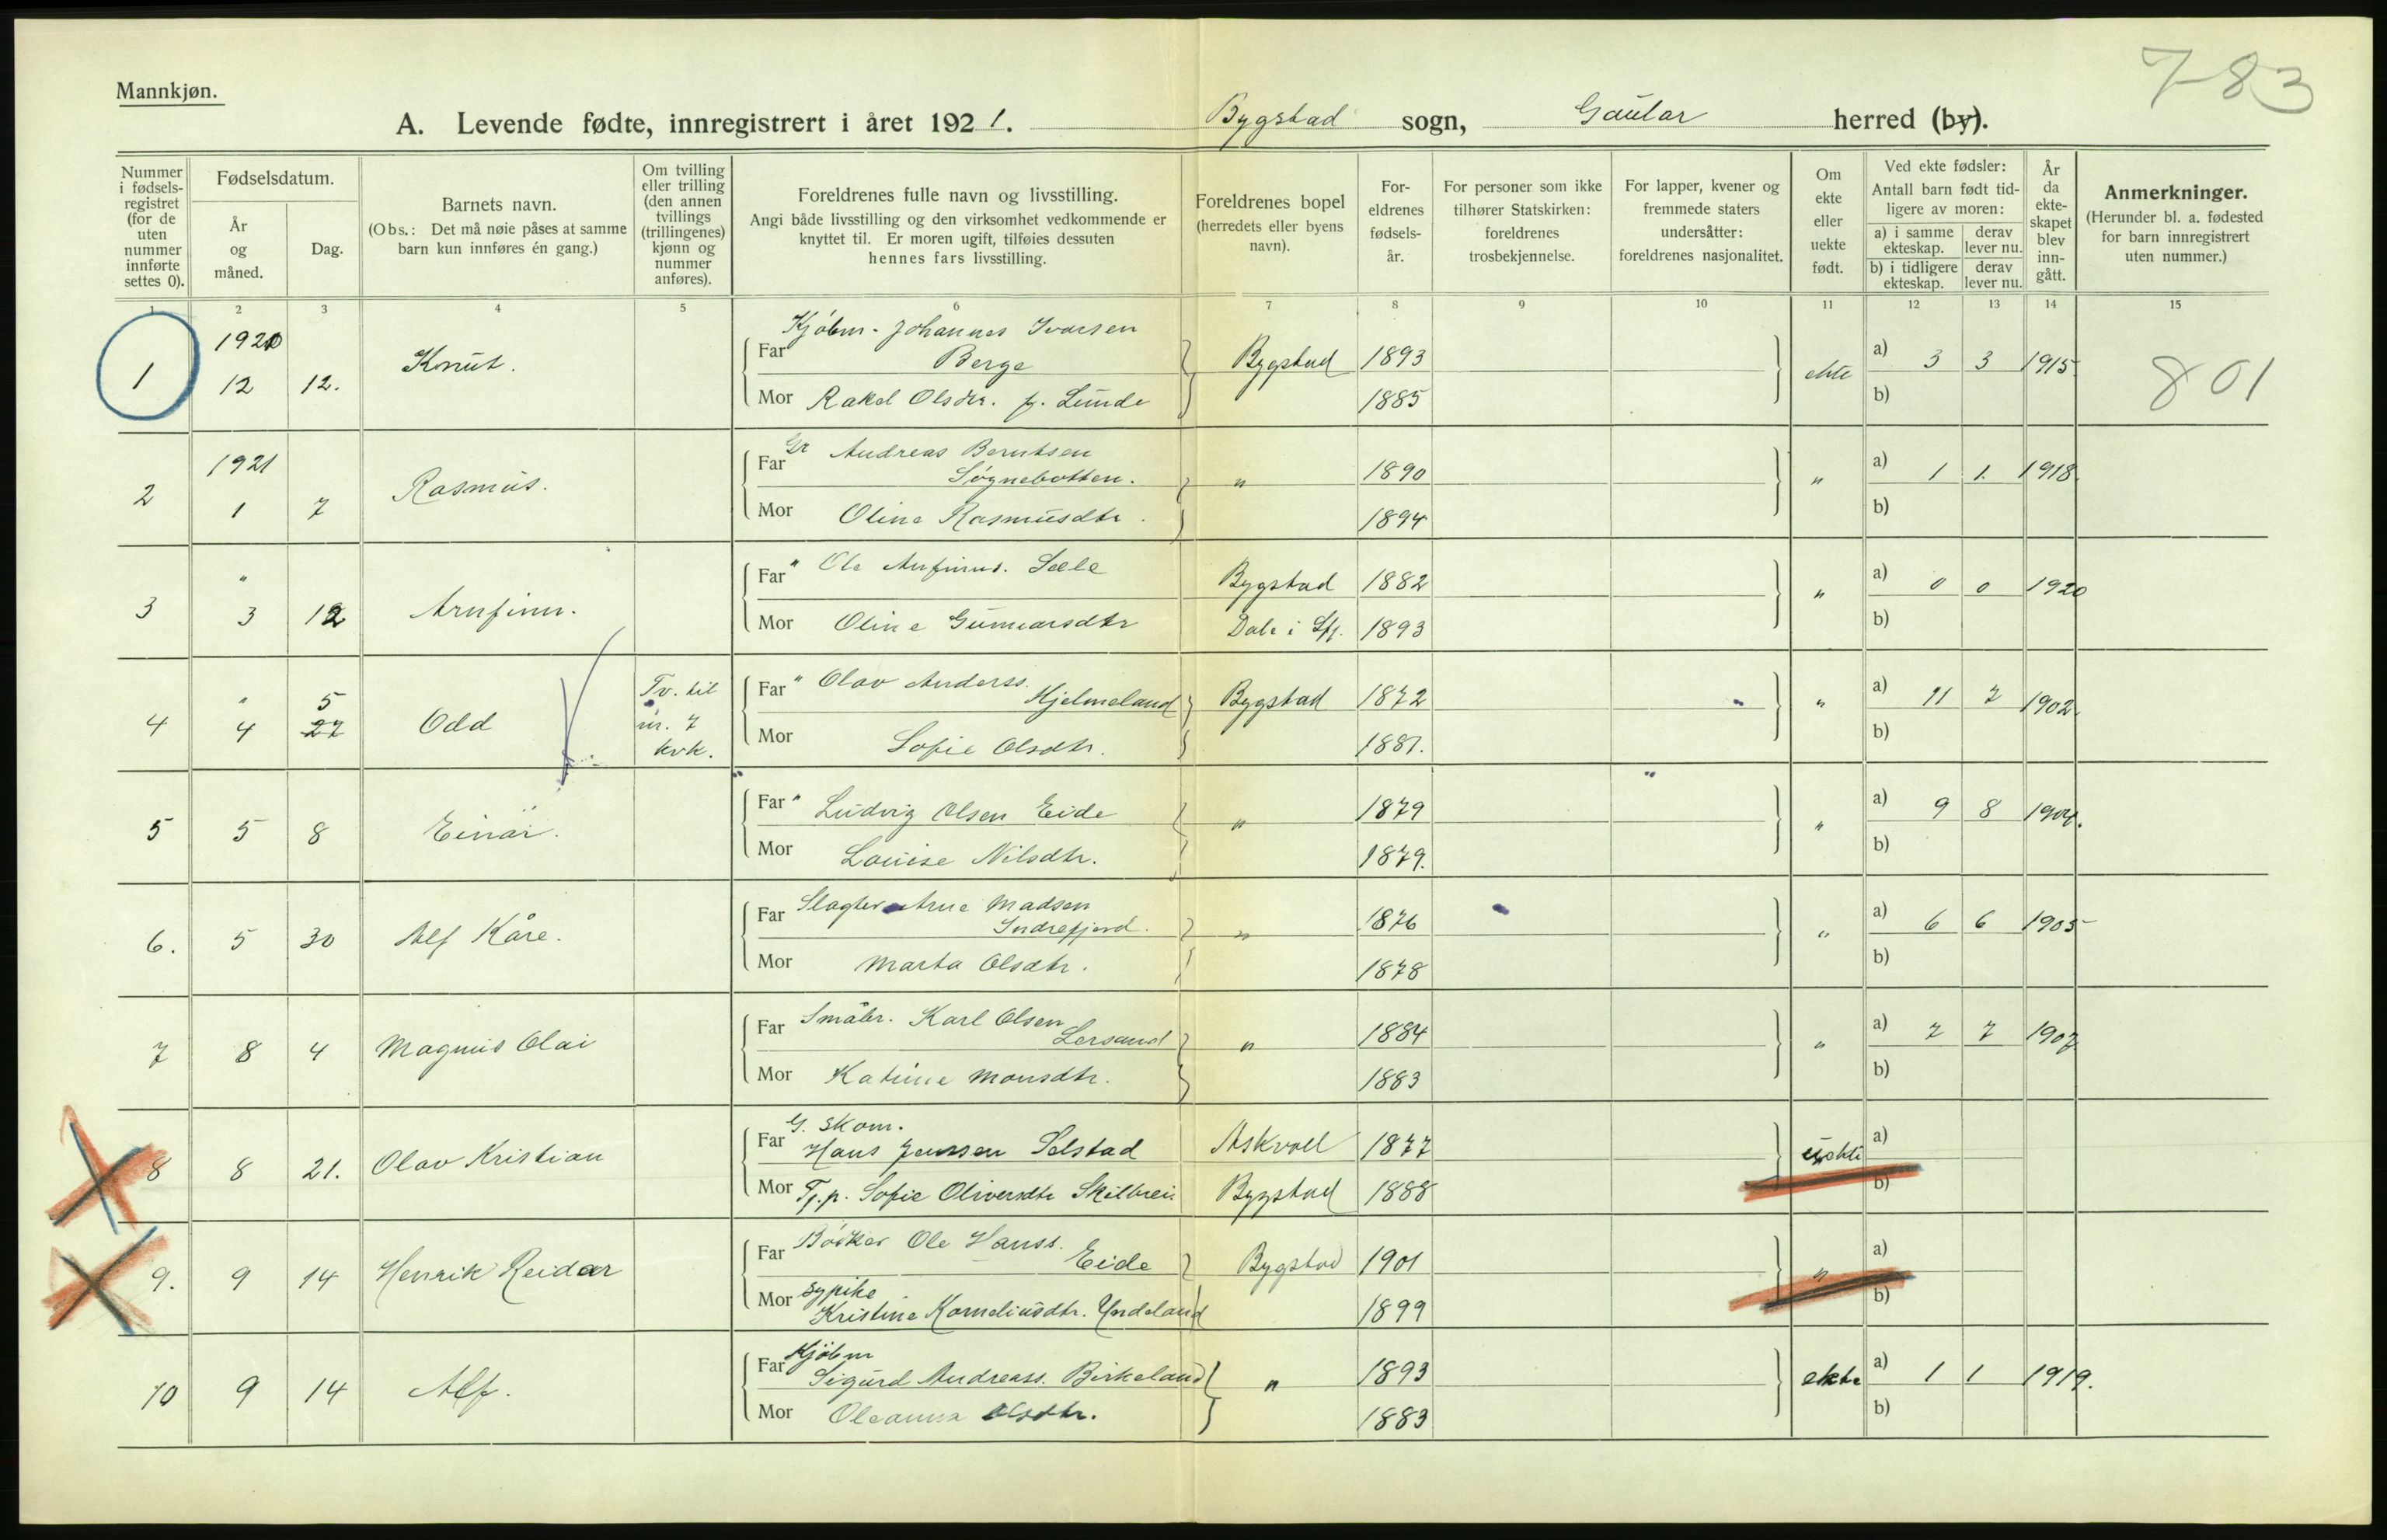 7-83
Mannkjøn.
A. Levende fødte, innregistrert i året 1921. Bygstad sogn, Gaular herred (by).
Nummer i fødselsregistret (for de uten nummer innførte settes 0).
Fødselsdatum.
År og måned.
Dag.
Barnets navn.
(Obs.: Det må nøie påses at samme barn kun innføres én gang.)
Om tvilling eller trilling (den annen tvillings (trillingenes) kjønn og nummer anføres).
Foreldrenes fulle navn og livsstilling.
Angi både livsstilling og den virksomhet vedkommende er knyttet til. Er moren ugift, tilføies dessuten hennes fars livsstilling.
Foreldrenes bopel (herredets eller byens navn).
Foreldrenes fødselsår.
For personer som ikke tilhører Statskirken: foreldrenes trosbekjennelse.
For lapper, kvener og fremmede staters undersåtter: foreldrenes nasjonalitet.
Om ekte eller uekte født.
Ved ekte fødsler:
Antall barn født tidligere av moren:
a) i samme ekteskap. derav lever nu.
b) i tidligere ekteskap. derav lever nu.
År da ekteskapet blev inngått.
Anmerkninger.
(Herunder bl. a. fødested for barn innregistrert uten nummer.)
1 2 3 4 5 6 7 8 9 10 11 12 13 14 15
1 1920 12 12. Knut. Far Kjøbm. Johannes Ivarsen Berge Bygstad 1893 ekte a) 3 3 1915 801
Mor Rakel Olsdtr. f. Lunde 1885 b)
2 1921 1 7 Rasmus. Far Gr Andreas Berntsen Søgnebotten. " 1890 " a) 1 1. 1918.
Mor Oline Rasmusdtr. 1894 b)
3 " 3 12 Arnfinn. Far " Ole Anfinns. Sæle Bygstad 1882 " a) 0 0 1920
Mor Oline Gunnarsdtr Dale i Sfj. 1893 b)
4 " 4 5 27 Odd Tv. til nr. 7 kvk. Far " Olav Anderss. Hjelmeland Bygstad 1872 " a) 11 7 1902.
Mor Sofie Olsdtr. 1881. b)
5 5 8 Einar. Far " Ludvig Olsen Eide " 1879 " a) 9 8 1904.
Mor Louise Nilsdtr. 1879. b)
6. 5 30 Alf Kåre. Far Slagter Arne Madsen Indrefjord. " 1876 " a) 6 6 1905
Mor Marta Olsdtr. 1878 b)
7 8 4 Magnus Olai Far Småbr. Karl Olsen Lersand " 1884 " a) 7 7 1907
Mor Katrine Monsdtr. 1883 b)
8 8 21. Olav Kristian Far G. Skom. Hans Jenssen Selstad Askvoll 1877 uekte a)
Mor Tj.p. Sofie Oliversdtr Skilbrei Bygstad 1888 b)
9. 9 14 Henrik Reidar Far Bødker Ole Hanss. Eide Bygstad 1901 " a)
Mor Sypike Kristine Korneliusdtr. Yndeland 1899 b)
10 9 14 Alf. Far Kjøbm Sigurd Andreass. Birkeland " 1893 ekte a) 1 1 1919.
Mor Oleanna Olsdtr. 1883 b)